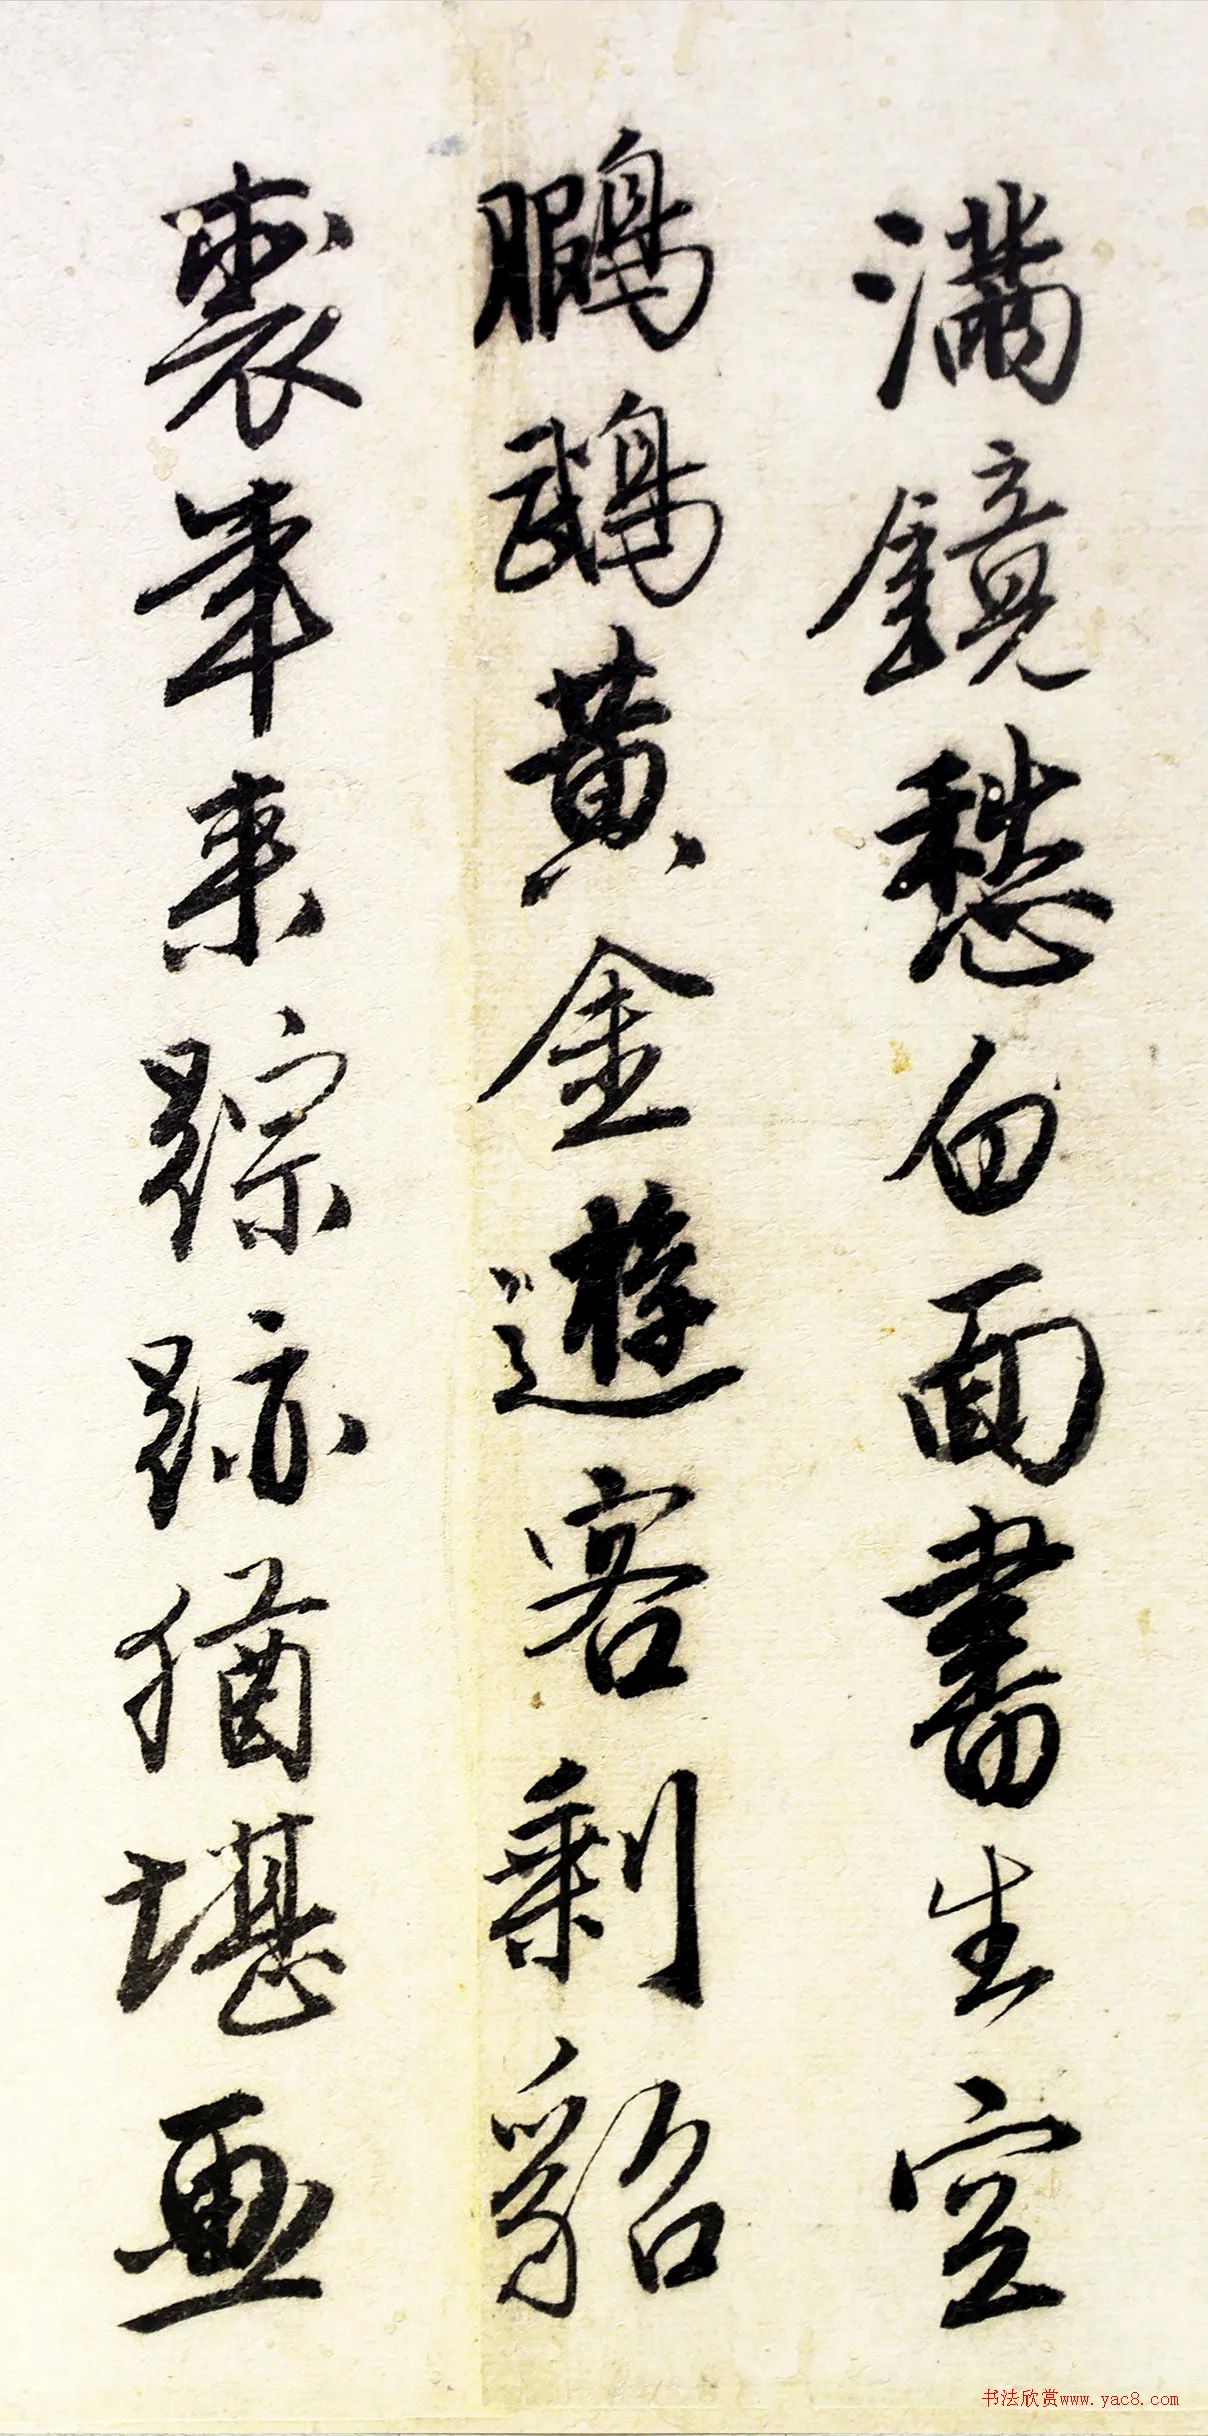 满鏡愁白面書生空
鵬鵡黄金遊客剩貂
裘年来踪跡猶堪画
书法欣赏www.yac8.com